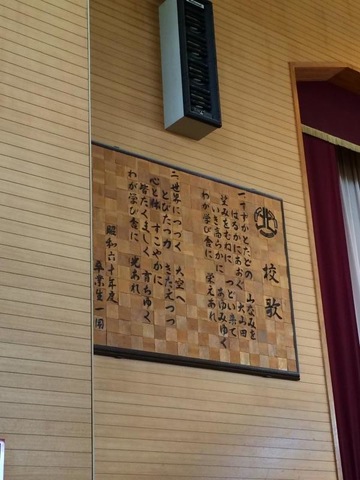 校歌
一 すずかとたどの 山なみを
はるかにあおぐ 大山田
望みをむねに つどい来て
いき高らかに あゆみゆく
わが学び舎に 栄えあれ
二 世界につづく 大空へ
とびたつ力 きたえつつ
心と体 すこやかに
皆たくましく 育ちゆく
わが学び舎に 光あれ
昭和六十年度
卒業生一同